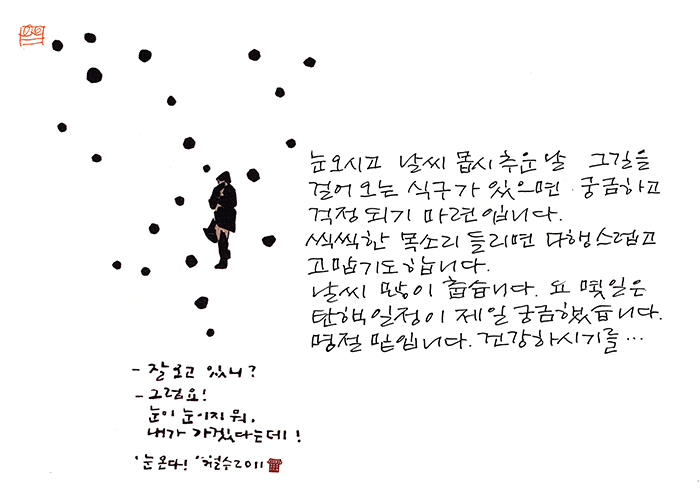 눈오시고 날씨 몹시 추운 날 그길을
걸어 오는 식구가 있으면 궁금하고
걱정 되기 마련입니다.
씩씩한 목소리 들리면 다행스럽고
고맙기도 합니다.
날씨 많이 춥습니다. 요 몇일은
탄핵일정이 제일 궁금했습니다.
명절 밑입니다. 건강하시기를…
- 잘 오고 있니?
- 그럼요!
눈이 눈이지 뭐.
내가 가겠다는데!
'눈온다!' 철수2011